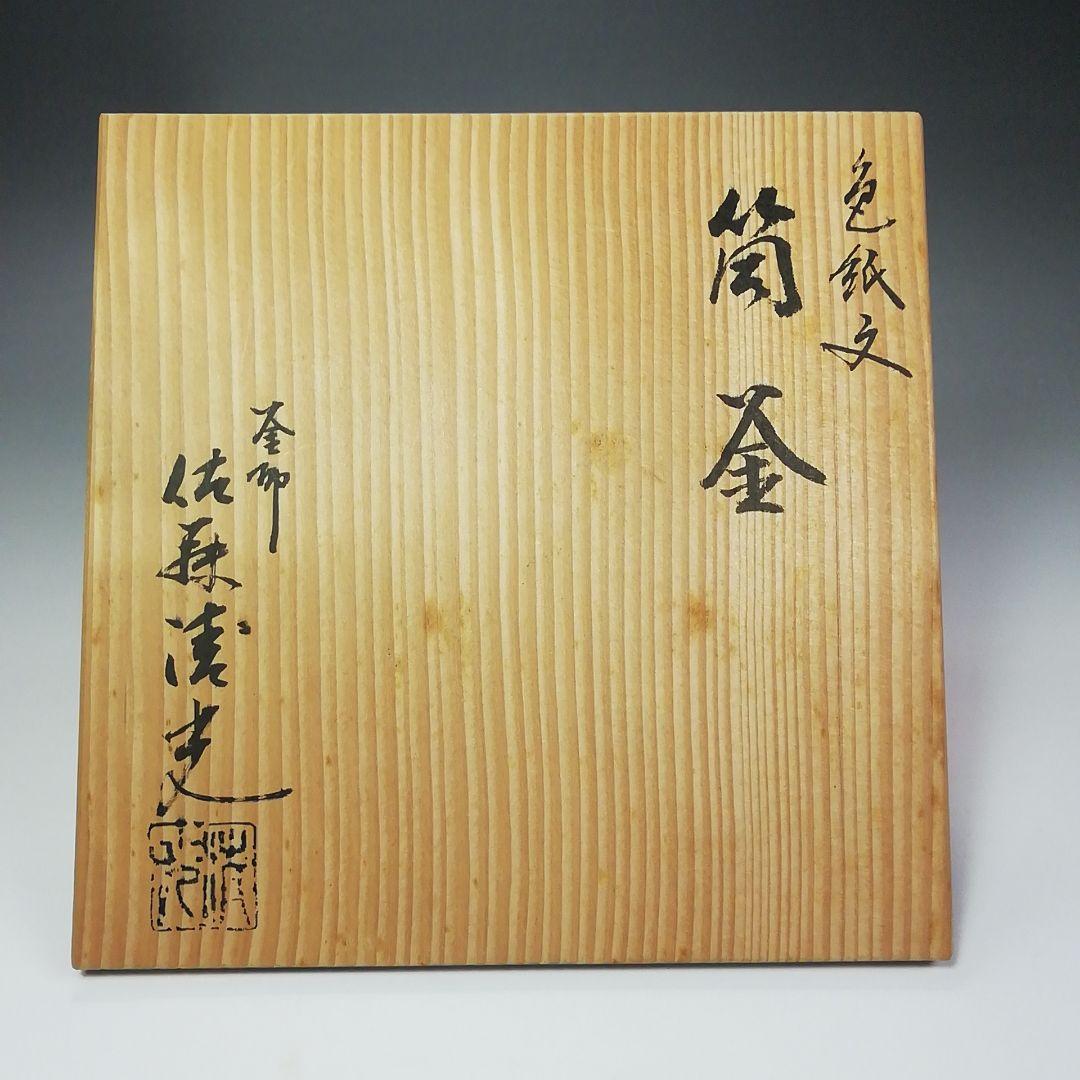 色紙文
筒釜
釜師
佐藤清光